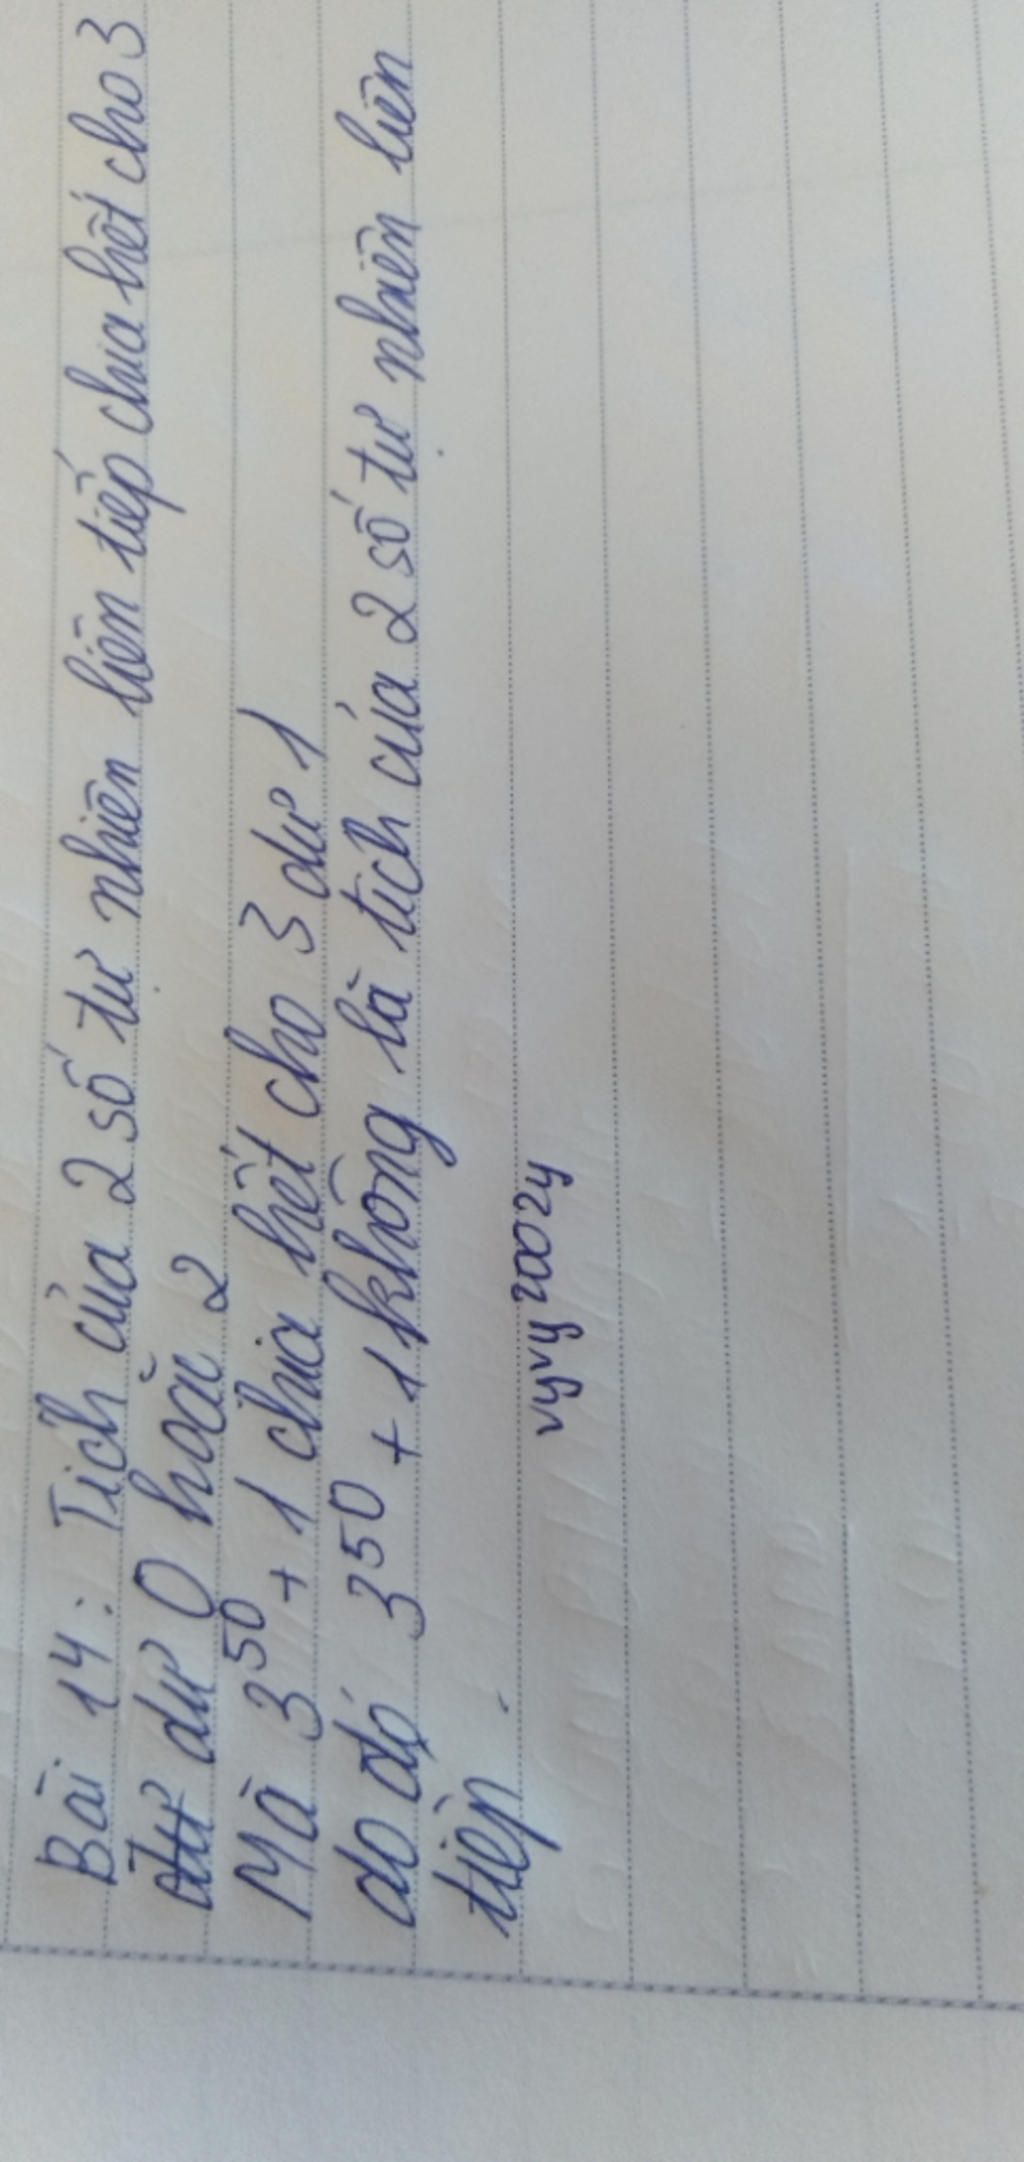 Bài 14: Tích của 2 số tự nhiên liên tiếp chia hết cho 3
dư 0 hoặc 2
Mà 3^50 + 1 chia hết cho 3 dư 1
do đó 3^50 + 1 không là tích của 2 số tự nhiên liên
tiếp.
vyvy2002y